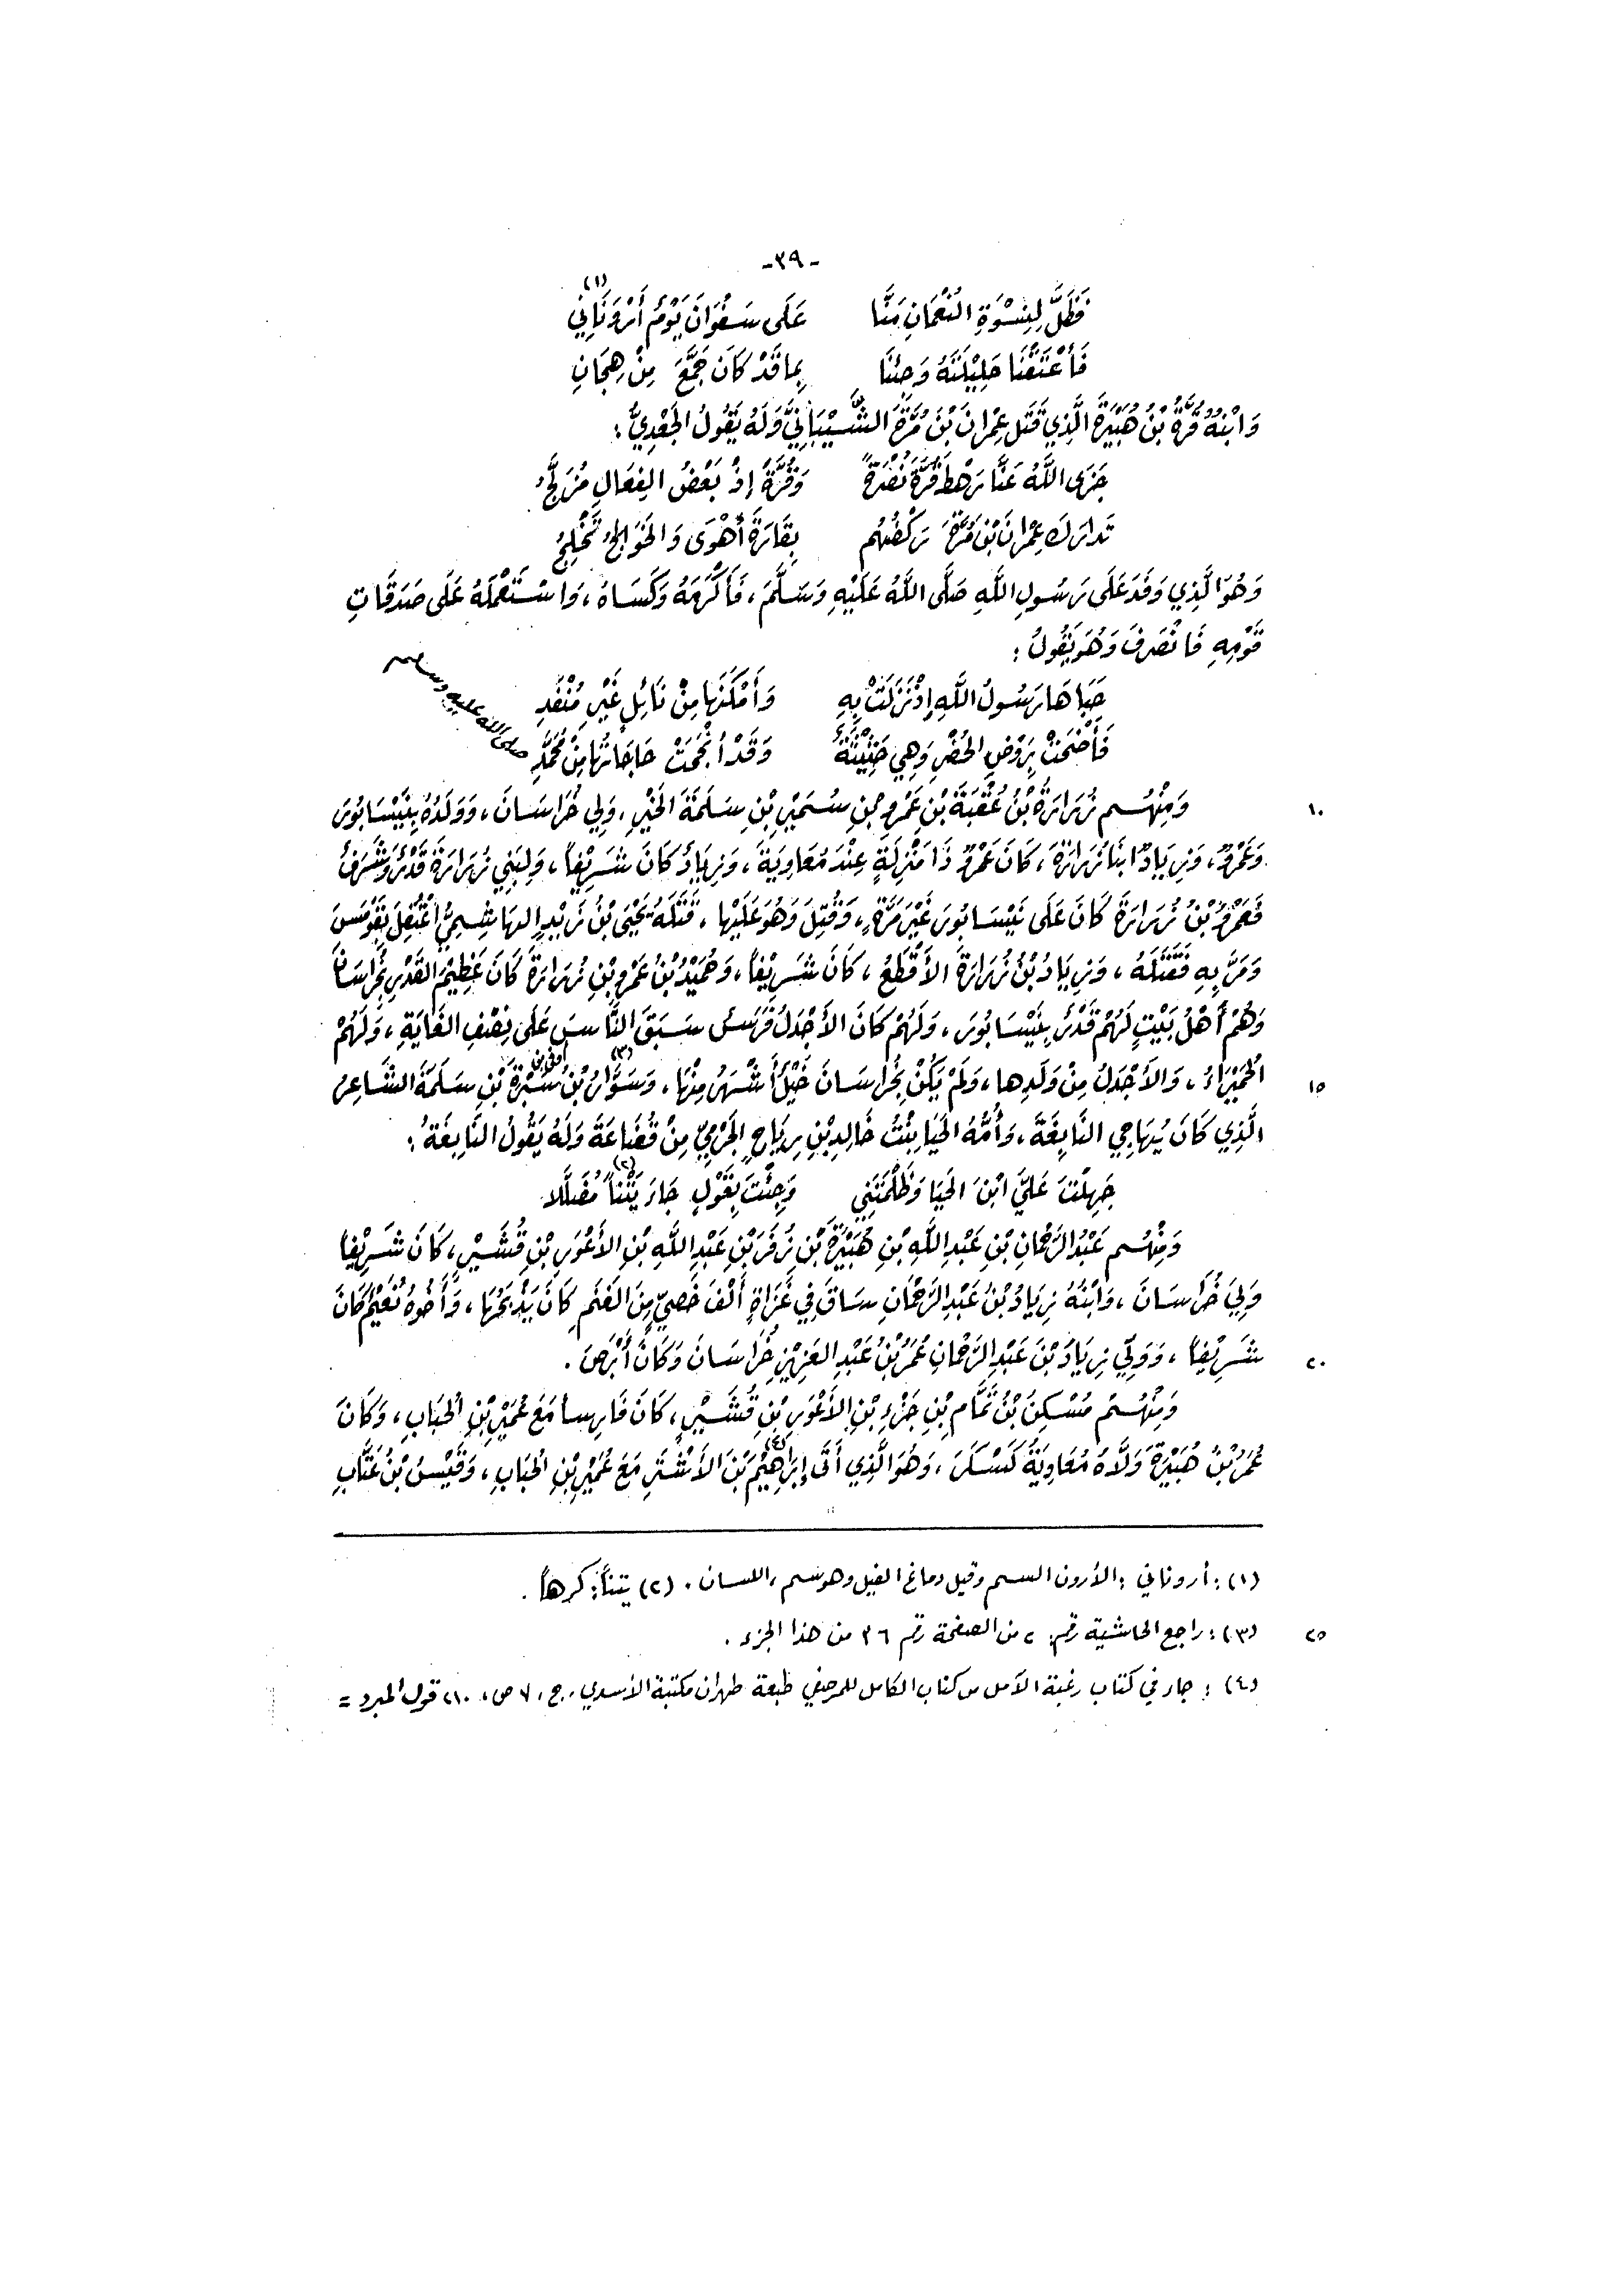 -٣٩-
فَظَلَّ لِنِسْوَةِ النُّعْمَانِ مَنَّا عَلَى سَفْوَانَ يَوْمٌ أَرْوَنَانِي (١)
فَأَعْتَقْنَا حَلِيْلَتَهُ وَجِئْنَا بِمَا قَدْ كَانَ جَمَّعَ مِنْ هِجَانِ
وَابْنُهُ قُرَّةُ بْنُ هُبَيْرَةَ الَّذِي قَتَلَ عِمْرَانَ بْنَ مُرَّةَ الشَّيْبَانِيَّ وَلَهُ يَقُولُ الجَعْدِيُّ :
جَزَى اللَّهُ عَنَّا رَهْطَ قُرَّةَ نُصْرَةً وَقُرَّةَ إِذْ بَعْضُ الفِعَالِ مُزَلَّجُ
تَدَارَكَ عِمْرَانَ بْنَ مُرَّةَ رَكْضُهُم بِقَارَةِ أَهْوَى وَالخَوَالِجُ تَخْلِجُ
وَهُوَ الَّذِي وَفَدَ عَلَى رَسُولِ اللَّهِ صَلَّى اللَّهُ عَلَيْهِ وَسَلَّمَ، فَأَكْرَمَهُ وَكَسَاهُ، وَاسْتَعْمَلَهُ عَلَى صَدَقَاتِ
قَوْمِهِ فَانْصَرَفَ وَهُوَ يَقُولُ :
حَبَاهَا رَسُولُ اللَّهِ إِذْ نَزَلَتْ بِهِ وَأَمْكَنَهَا مِنْ نَائِلٍ غَيْرِ مُنْفَدِ
فَأَضْحَتْ بِرَوْضِ الخُضْرِ وَهِي حَثِيْثَةٌ وَقَدْ أُنْجِحَتْ حَاجَاتُهَا مِنْ مُحَمَّدِ صلى الله عليه وسلم
١٠ وَمِنْهُم زُرَارَةُ بْنُ عُقْبَةَ بْنِ عَمْرِو بْنِ سُمَيْرِ بْنِ سَلَمَةَ الخَيْرِ، وَلِي خُرَاسَانَ، وَوَلَدُهُ بِنَيْسَابُورَ
وَعَمْرٌو، وَزِيَادٌ ابْنَا زُرَارَةَ، كَانَ عَمْرٌو ذَا مَنْزِلَةٍ عِنْدَ مُعَاوِيَةَ، وَزِيَادٌ كَانَ شَرِيْفاً، وَلِبَنِي زُرَارَةَ قَدْرٌ وَشَرَفٌ
فَعَمْرُو بْنُ زُرَارَةَ كَانَ عَلَى نَيْسَابُورَ غَيْرَ مَرَّةٍ، وَقُتِلَ وَهُوَ عَلَيْهَا، قَتَلَهُ يَحْيَى بْنُ زَيْدٍ الهَاشِمِيُّ اعْتُقِلَ بِقَوْمَسَ
وَمَرَّ بِهِ فَقَتَلَهُ، وَزِيَادُ بْنُ زُرَارَةَ الأَقْطَعُ، كَانَ شَرِيْفاً، وَحُمَيْدُ بْنُ عَمْرِو بْنِ زُرَارَةَ كَانَ عَظِيْمَ القَدْرِ بِخُرَاسَانَ
وَهُمْ أَهْلُ بَيْتٍ لَهُمْ قَدْرٌ بِنَيْسَابُورَ، وَلَهُمْ كَانَ الأَجْدَلُ فَرَسٌ سَبَقَ النَّاسَ عَلَى نِصْفِ الغَايَةِ، وَلَهُمْ
١٥ الحُمَيْرَاءُ، وَالأَجْدَلُ مِنْ وَلَدِهَا، وَلَمْ يَكُنْ بِخُرَاسَانَ خَيْلٌ أَشْهَرُ مِنْهَا، وَسَوَّارُ (٣) بْنُ أوفى بن سَبْرَةَ بْنِ سَلَمَةَ الشَّاعِرُ
الَّذِي كَانَ يُهَاجِي النَّابِغَةَ، وَأُمُّهُ الحَيَا بِنْتُ خَالِدِ بْنِ رِيَاحٍ الجَرْمِيِّ مِنْ قُضَاعَةَ وَلَهُ يَقُولُ النَّابِغَةُ :
جَهِلْتَ عَلَيَّ ابْنَ الحَيَا وَظَلَمْتَنِي وَجِئْتَ بِقَوْلٍ جَارَ يَتْناً (٢) مُضَلَّلا
وَمِنْهُم عَبْدُ الرَّحْمَانِ بْنِ عَبْدِ اللَّهِ بْنِ هُبَيْرَةَ بْنِ زُفَرَ بْنِ عَبْدِ اللَّهِ بْنِ الأَعْوَرِ بْنِ قُشَيْرٍ، كَانَ شَرِيْفاً
وَلِيَ خُرَاسَانَ، وَابْنُهُ زِيَادُ بْنُ عَبْدِ الرَّحْمَانِ سَاقَ فِي غَزَاةٍ أَلْفَ خَصِيٍّ مِنَ الغَنَمِ كَانَ يَذْبَحُهَا، وَأَخُوهُ نُعَيْمٌ كَانَ
٢٠ شَرِيْفاً، وَوَلِّي زِيَادَ بْنَ عَبْدِ الرَّحْمَانِ عُمَرُ بْنُ عَبْدِ العَزِيْزِ خُرَاسَانَ وَكَانَ أَبْرَصَ .
وَمِنْهُم مُسْكِنَ بْنُ تَمَّامِ بْنِ جَزْءِ بْنِ الأَعْوَرِ بْنِ قُشَيْرٍ، كَانَ فَارِساً مَعَ عُمَيْرِ بْنِ الحُبَابِ، وَكَانَ
عُمَرُ بْنُ هُبَيْرَةَ وَلَّاهُ مُعَاوِيَةُ كَسْكَرَ، وَهُوَ الَّذِي أَتَى إِبْرَاهِيْمَ (٤) بْنَ الأَشْتَرِ مَعَ عُمَيْرِ بْنِ الحُبَابِ، وَقَيْسُ بْنُ عَتَّابِ
(١) : أروناني : الأرون السم وقيل دماغ الفيل وهو سم، اللسان . (٢) يتناً : كرهاً .
٢٥ (٣) : راجع الحاشية رقم: ٢ من الصفحة رقم ٣٦ من هذا الجزء .
(٤) : جاء في كتاب رغبة الآمل من كتاب الكامل للمرصفي طبعة طهران مكتبة الأسدي، ج، ٧ ص، ٢١٠ قول المبرد =